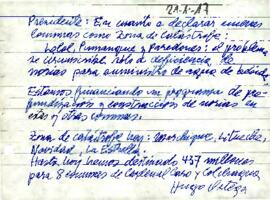 21-1-17
Presidente: En cuanto a declarar nuevas
comunas como zona de catástrofe:
Lolol, Pumanque y Paredones: el problema
se circunscribe sólo a deficiencia de
norias para suministro de agua de bebida
Estamos financiando un programa de pro-
fundización y construcción de norias en
esas y otras comunas.
Zona de catástrofe hoy: Marchigue, Litueche,
Navidad, La Estrella.
Hasta hoy hemos destinado 437 millones
para 8 comunas de Cardenal Caro y Colchagua
Hugo Ortega